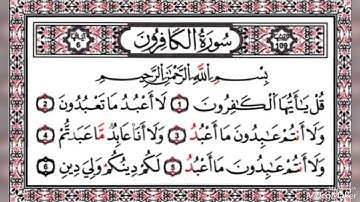 سُورَةُ الْكَافِرُونَ
بِسْمِ اللَّهِ الرَّحْمَٰنِ الرَّحِيمِ
قُلْ يَا أَيُّهَا الْكَافِرُونَ 1 لَا أَعْبُدُ مَا تَعْبُدُونَ 2
وَلَا أَنتُمْ عَابِدُونَ مَا أَعْبُدُ 3 وَلَا أَنَا عَابِدٌ مَّا عَبَدتُّمْ 4
وَلَا أَنتُمْ عَابِدُونَ مَا أَعْبُدُ 5 لَكُمْ دِينُكُمْ وَلِيَ دِينِ 6